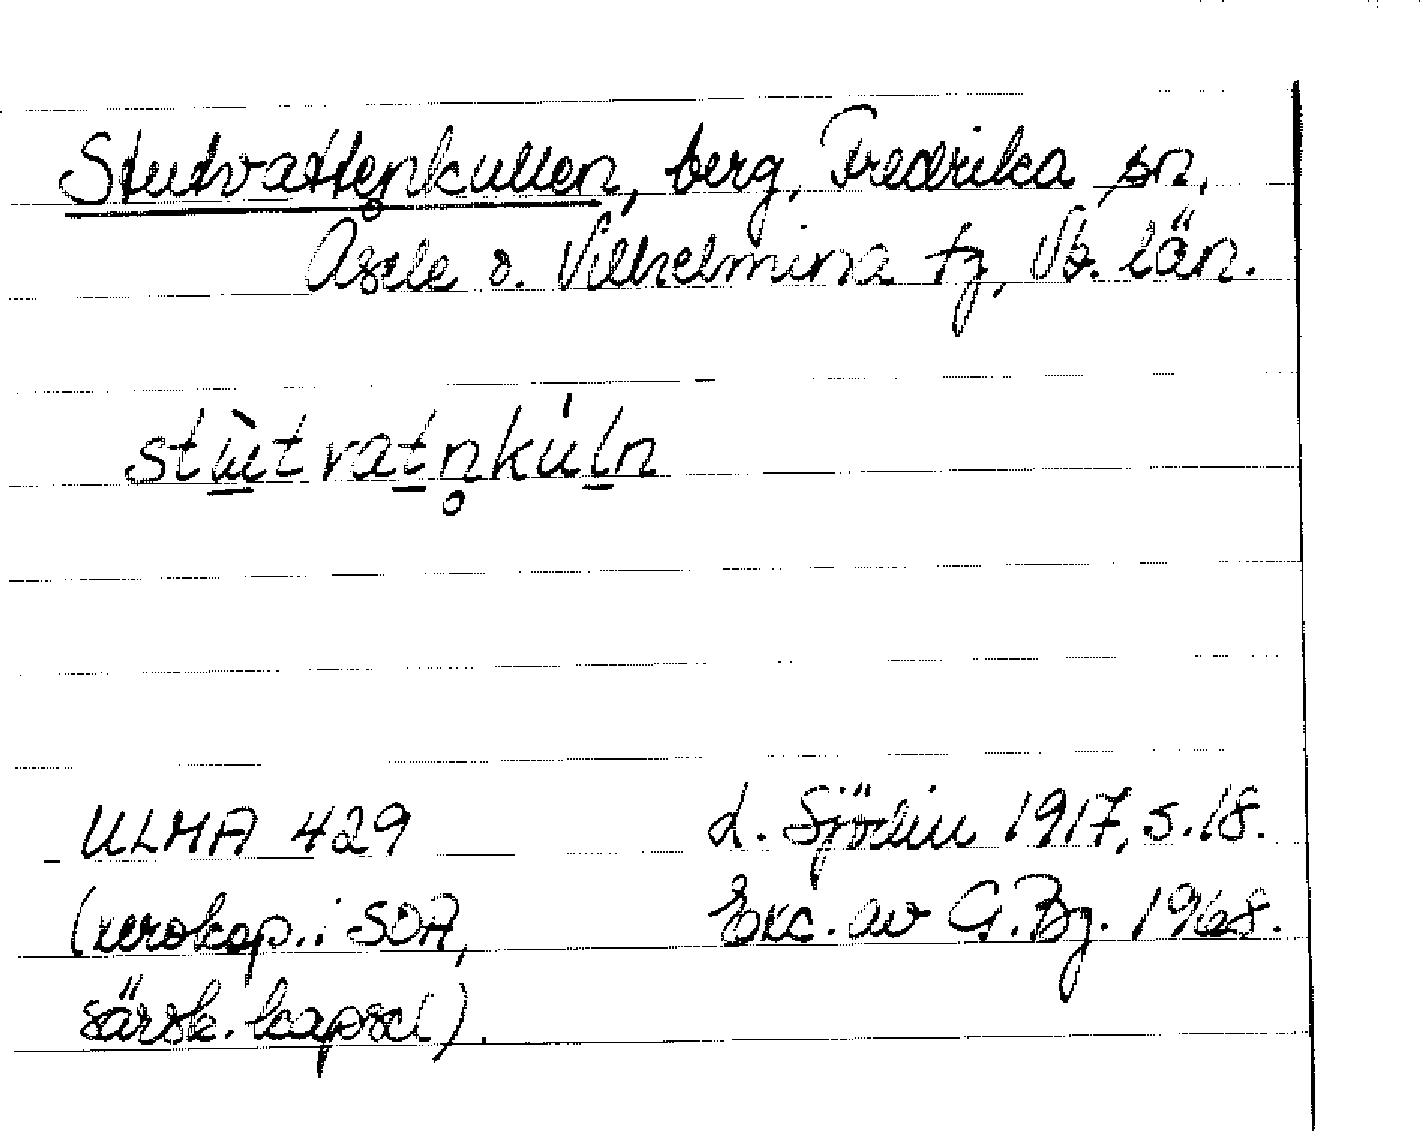 Stutvattenkullen, berg, Fredrika sn,
Åsele o. Vilhelmina tg, Vb. län.
stù̲tvat̲n̥kúl̲n
ULMA 429
L. Sjödin 1917, s. 18.
(xerokop. i SOA,
Exc. av G. Bg. 1968.
särsk. kapsel).